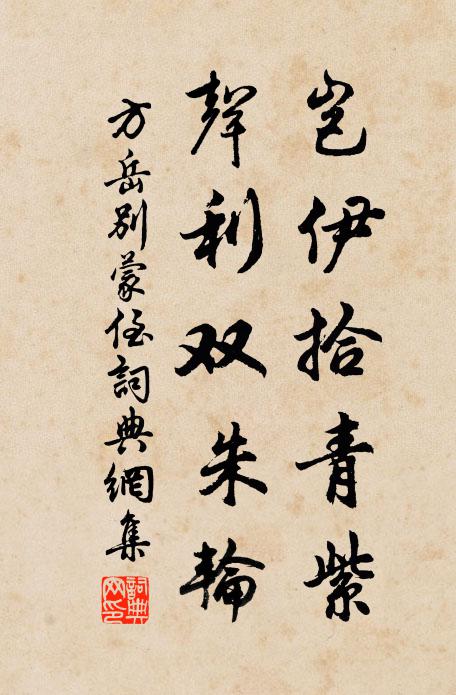 岂伊拾青紫
声利双朱輪
方岳别蒙侄詞典網集
詞典網印